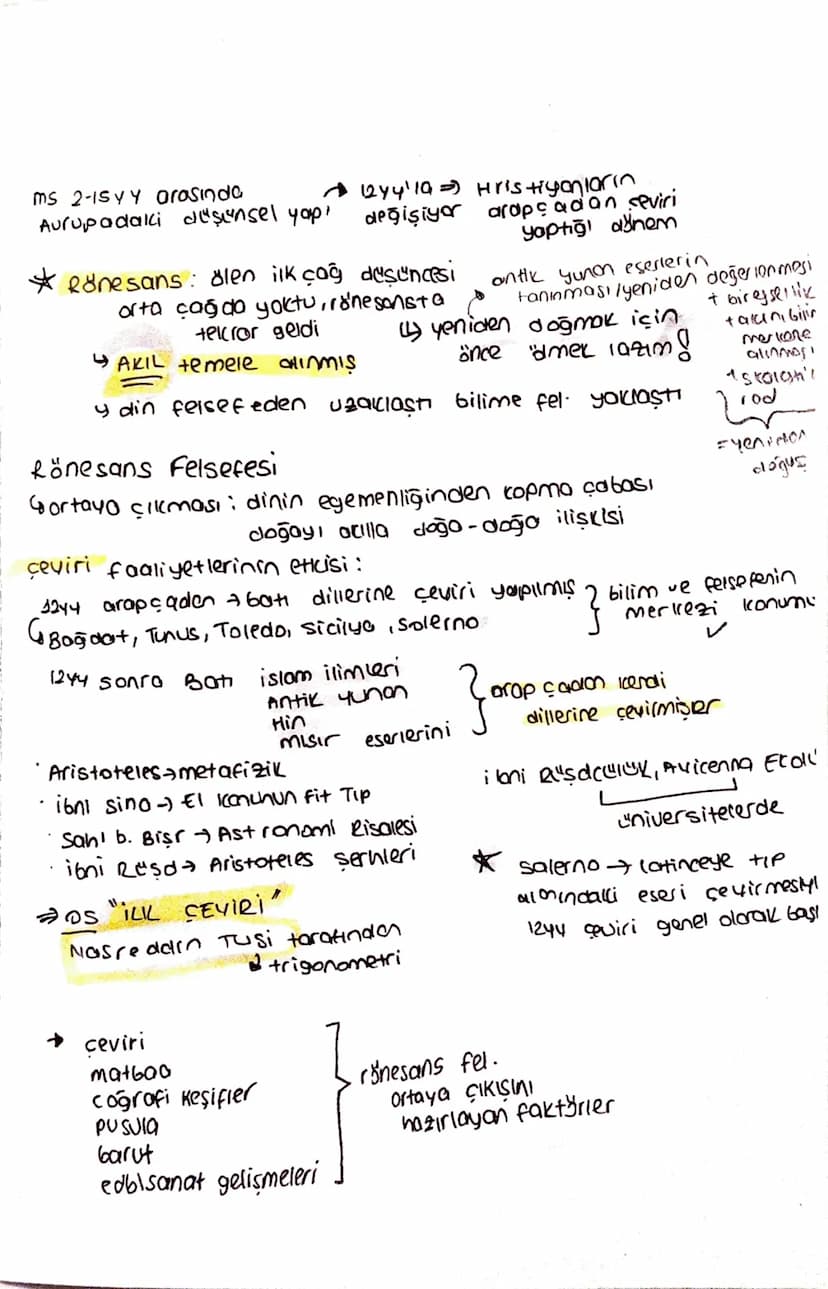 MS 2-15 YY arasında
Avrupadaki düşünsel yapı
→ 12 YY'la ⇒ Hristiyanların
değişiyor arapçadan çeviri
yaptığı dönem
★ Rönesans: ölen ilk çağ düşüncesi
orta çağda yoktu, rönesansta
tekrar geldi
antik yunan eserlerin
tanınması/yeniden değerlenmesi
+ bireysellik
+ akıl, bilim
merkeze
alınması
+ skolastiğ'i
rod
= yeniden
doğuş
(!) yeniden doğmak için
önce ölmek lazım!
↳ AKIL temele alınmış
↳ din felsefeden uzaklaştı bilime fel. yaklaştı
Rönesans Felsefesi
↳ ortaya çıkması: dinin egemenliğinden kopma çabası
doğayı akılla doğa-doğa ilişkisi
çeviri faaliyetlerinin etkisi:
12YY arapçadan → batı dillerine çeviri yapılmış
↳ Bağdat, Tunus, Toledo, Sicilya, Solerno
} bilim ve felsefenin
merkezi konumu
✓
12YY sonra Batı islam ilimleri
Antik Yunan
Hin
mısır eserlerini
} arapçadan kendi
dillerine çevirmişler
· Aristoteles → metafizik
· ibni sina → El Kanunun Fit Tıp
· Sahl b. Bişr → Astronomi Risalesi
· ibni Rüşd → Aristoteles Şerhleri
ibni Rüşdcülük, Avicenna Ekolü
üniversitelerde
⇒ OS "İLK ÇEVİRİ"
Nasreddin Tusi tarafından
↳ trigonometri
★ Salerno → latinceye tıp
alanındaki eseri çevirmesiyl
12YY çeviri genel olarak başl
→ çeviri
matbaa
coğrafi keşifler
pusula
barut
edb\sanat gelişmeleri
} rönesans fel.
ortaya çıkışını
hazırlayan faktörler